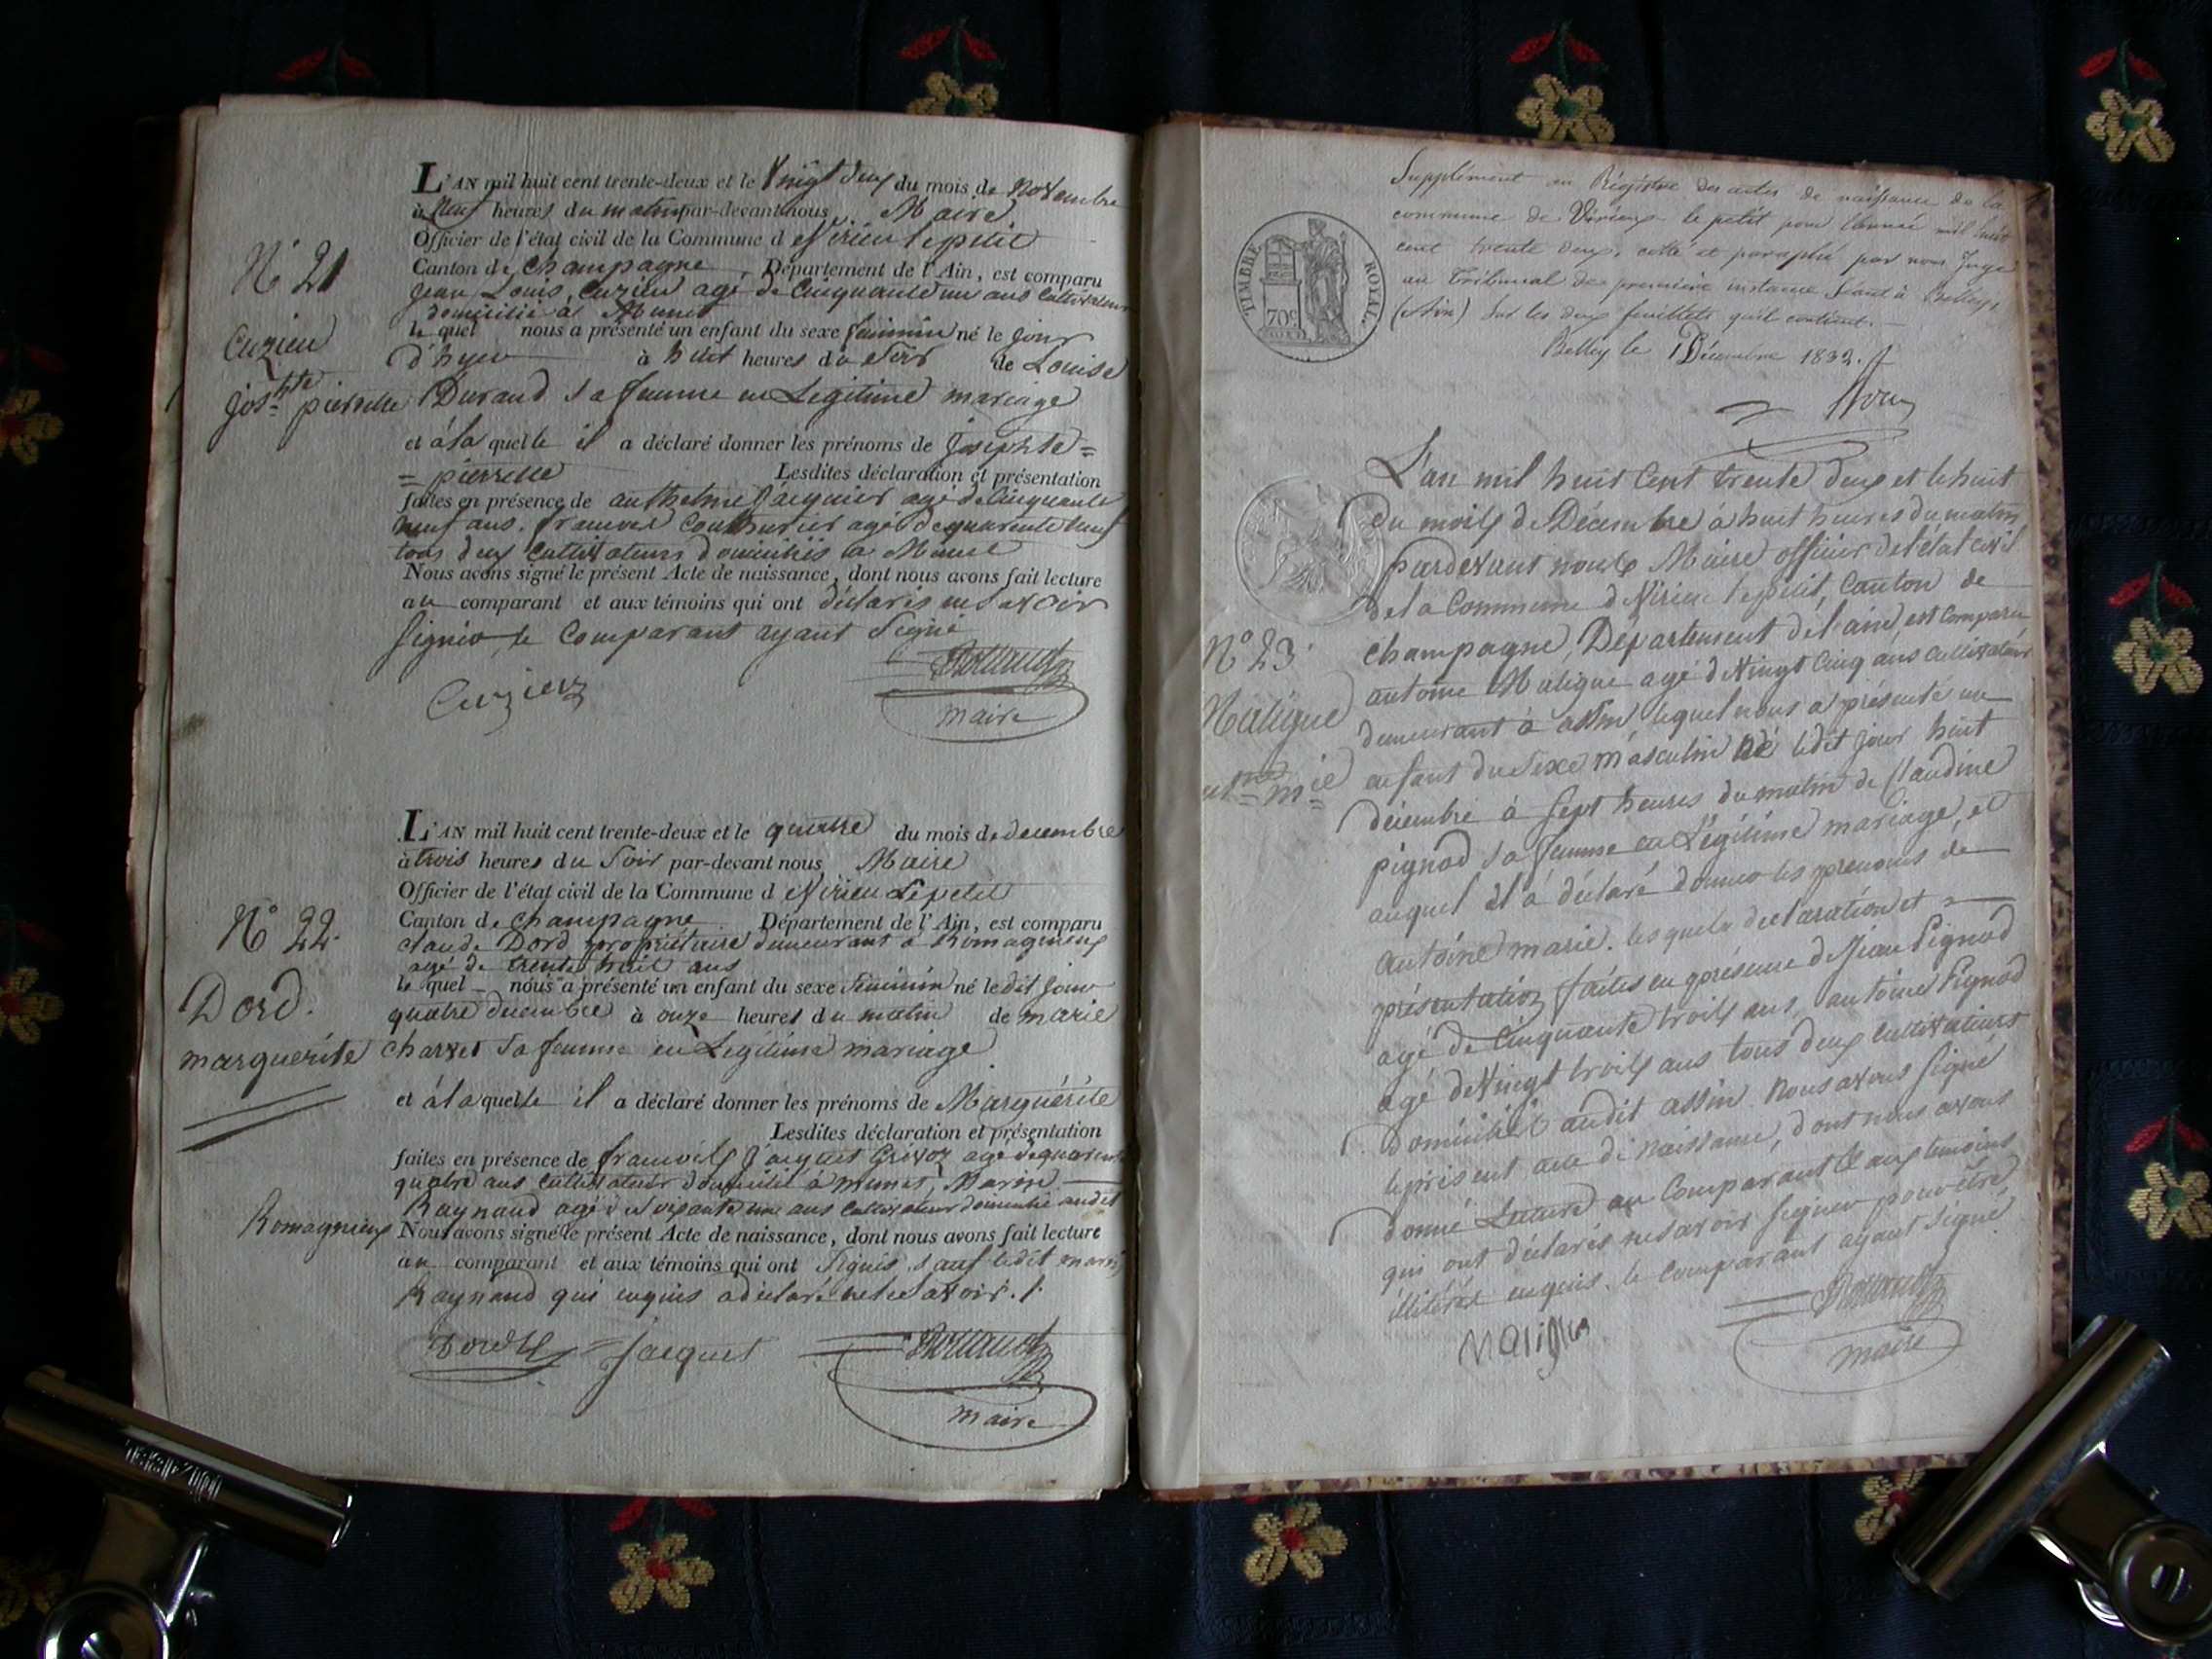 L'AN mil huit cent trente-deux et le Vingt deux du mois de Novembre
à Neuf heures du matin par-devant nous Maire
Officier de l'état civil de la Commune d Virieu le petit
Canton de Champagne, Département de l'Ain, est comparu
Jean Louis Cuzieu agé de Cinquante un ans Cultivateur
domicilié à Munet
N° 21
Cuzieu
Jos.hte pierrette
le quel nous a présenté un enfant du sexe feminin né le jour
d'hyer à huit heures du Soir de Louise
Durand Sa femme en Legitime mariage
et à la quelle il a déclaré donner les prénoms de Josephte =
= pierrette Lesdites déclaration et présentation
faites en présence de anthelme Jacquier agé de Cinquante
neuf ans. francois Couturier agé de quarante neuf
tous deux Cultivateurs domiciliés à Munet
Nous avons signé le présent Acte de naissance, dont nous avons fait lecture
au comparant et aux témoins qui ont déclarés ne Savoir
Signer le Comparant ayant Signé
Cuzieu
maire
L'AN mil huit cent trente-deux et le quatre du mois de decembre
à trois heures du Soir par-devant nous Maire
Officier de l'état civil de la Commune d Virieu Le petit
N° 22.
Dord.
marguerite
Canton de Champagne Département de l'Ain, est comparu
claude Dord propriétaire demeurant à Romagnieux
agé de trente huit ans
le quel nous a présenté un enfant du sexe Feminin né ledit jour
quatre decembre à onze heures du matin de marie
Charvet Sa femme en Legitime mariage
et à la quelle il a déclaré donner les prénoms de Marguérite
Lesdites déclaration et présentation
faites en présence de francois Jacquet agé de quarante
quatre ans Cultivateur domicilié à munet, Marin
Raynaud agé de Soixante une ans Cultivateur domicilié audit
Romagnieux
Nous avons signé le présent Acte de naissance, dont nous avons fait lecture
au comparant et aux témoins qui ont Signés sauf ledit marin
Raynaud qui enquis a déclaré ne le Savoir ./.
Jacquet
maire
Supplément au Régistre des actes de naissance de la
commune de Virieux le petit pour l'année mil huit
cent trente deux, cotté et paraphé par nous Juge
au Tribunal de première instance séant à Belley,
(Ain) sur les deux feuillets qu'il contient.
Belley le 1 Décembre 1832.
TIMBRE ROYAL.
70c
L'an mil huit Cent trente deux et le huit
du mois de Décembre à huit heures du matin
pardevant nous Maire officier de l'état civil
de la Commune d Virieu le petit, Canton de
Champagne, Département de l'ain, est Comparu
N° 23.
Matigue
antoine Matigue agé de Vingt Cinq ans Cultivateur
demeurant à assin, lequel nous a présenté un
enfant du Sexe masculin né ledit jour huit
décembre à Sept heures du matin de Claudine
pignod Sa femme en Légitime mariage, et
auquel il a déclaré donner les prenoms de
antoine marie. lesquels declaration et
présentation faites en présence de Jean Pignod
agé de Cinquante trois ans, antoine Pignod
agé de Vingt trois ans tous deux Cultivateurs
Domiciliés audit assin. nous avons Signé
le présent acte de naissance, dont nous avons
donné Lecture au Comparant & aux temoins
qui ont déclarés ne Savoir Signer pour être
illitérés enquis. le Comparant ayant Signé
maire